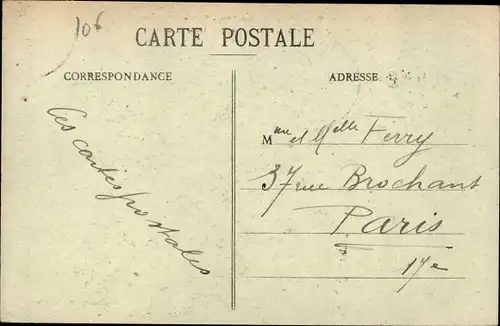 106
CARTE POSTALE
CORRESPONDANCE
Ces cartes postales
ADRESSE
Mme et Melle Ferry
37 rue Brochant
Paris
17e